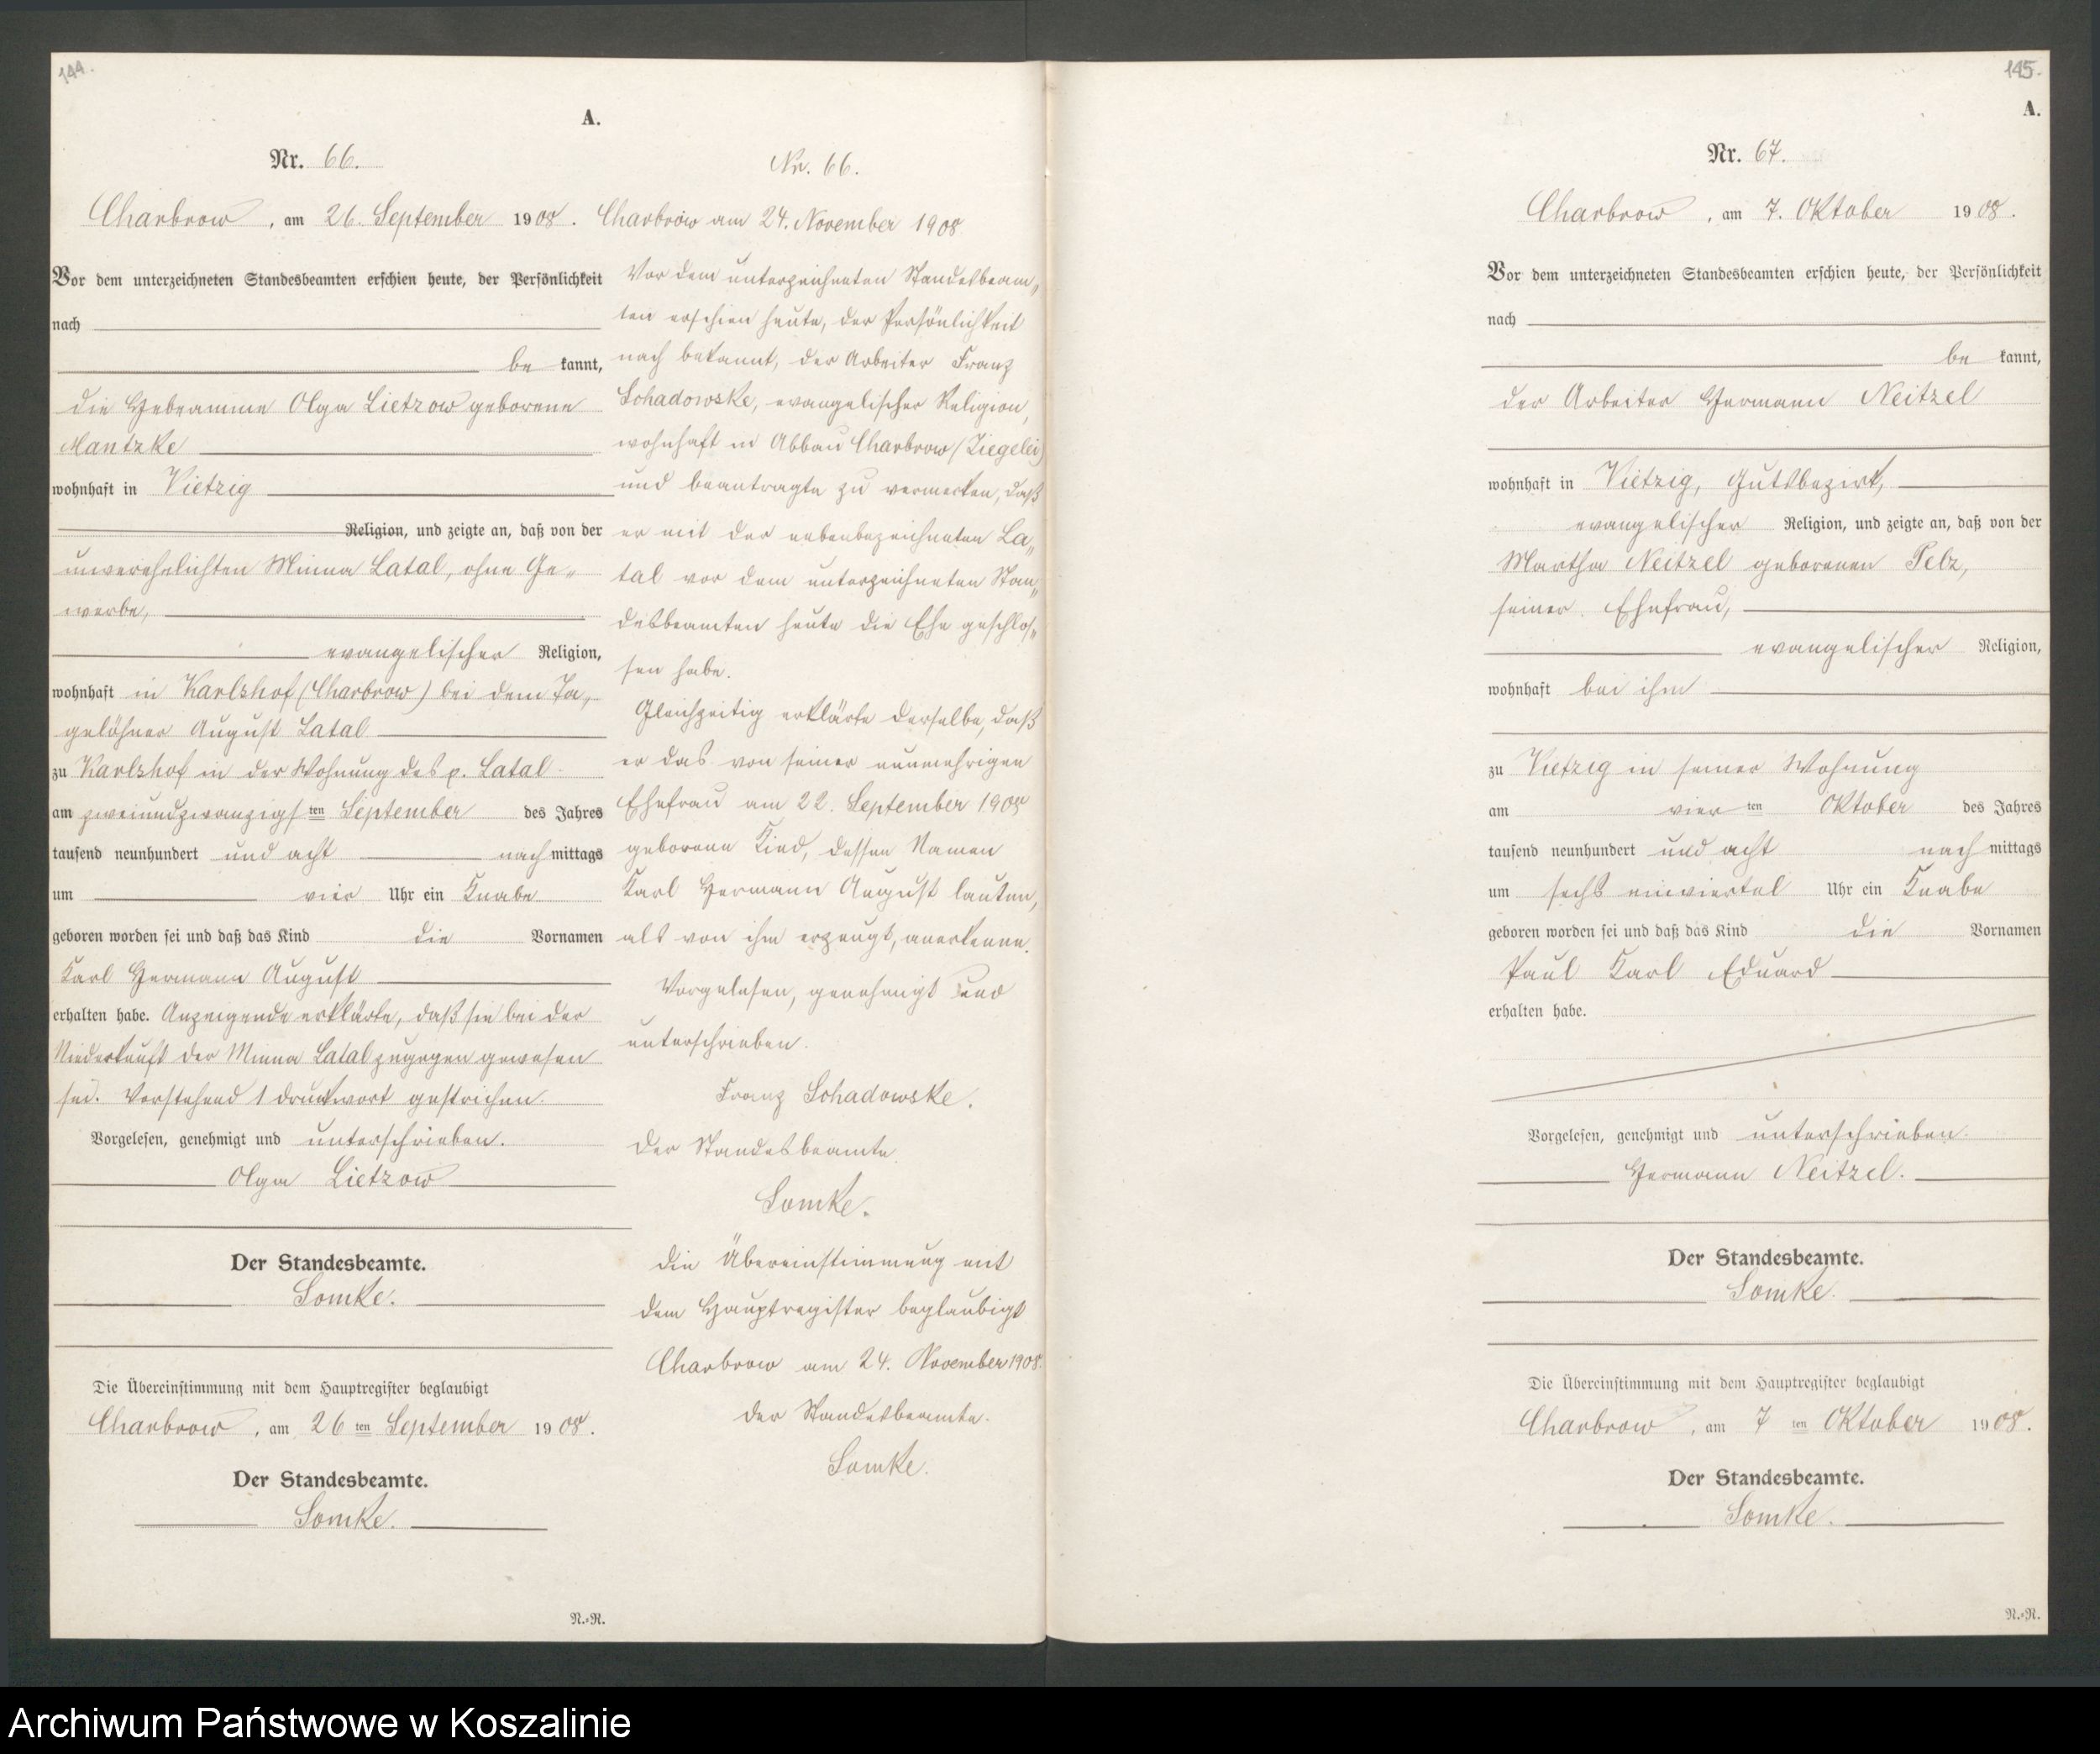 144.
A.
Nr. 66.
Charbrow, am 26. September 1908.
Vor dem unterzeichneten Standesbeamten erschien heute, der Persönlichkeit
nach
be kannt,
die Hebeamme Olga Lietzow geborene
Mantzke
wohnhaft in Vietzig
Religion, und zeigte an, daß von der
unverehelichten Minna Latal, ohne Ge„
werbe,
evangelischer Religion,
wohnhaft in Karlshof (Charbrow) bei dem Ta„
gelöhner August Latal
zu Karlshof in der Wohnung des p. Latal
am zweiundzwanzigsten September des Jahres
tausend neunhundert und acht nach mittags
um vier Uhr ein Knabe
geboren worden sei und daß das Kind die Vornamen
Karl Hermann August
erhalten habe. Anzeigende erklärte, daß sie bei der
Niederkunft der Minna Latal zugegen gewesen
sei. Vorstehend 1 Druckwort gestrichen.
Vorgelesen, genehmigt und unterschrieben.
Olga Lietzow
Der Standesbeamte.
Somke.
Die Übereinstimmung mit dem Hauptregister beglaubigt
Charbrow, am 26 ten September 1908.
Der Standesbeamte.
Somke.
N.=R.
Nr. 66.
Charbrow am 24. November 1908
Vor dem unterzeichneten Standesbeam„
ten erschien heute, der Persönlichkeit
nach bekannt, der Arbeiter Franz
Schadowske, evangelischer Religion,
wohnhaft in Abbau Charbrow (Ziegelei)
und beantragte zu vermerken, daß
er mit der nebenbezeichneten La„
tal vor dem unterzeichneten Stan„
desbeamten heute die Ehe geschlos„
sen habe.
Gleichzeitig erklärte derselbe, daß
er das von seiner nunmehrigen
Ehefrau am 22. September 1908
geborene Kind, dessen Namen
Karl Hermann August lauten,
als von ihm erzeugt, anerkenne.
Vorgelesen, genehmigt und
unterschrieben.
Franz Schadowske.
Der Standesbeamte.
Somke.
Die Übereinstimmung mit
dem Hauptregister beglaubigt
Charbrow am 24. November 1908.
Der Standesbeamte.
Somke.
145.
A.
Nr. 67.
Charbrow, am 7. Oktober 1908.
Vor dem unterzeichneten Standesbeamten erschien heute, der Persönlichkeit
nach
be kannt,
der Arbeiter Hermann Neitzel
wohnhaft in Vietzig, Gutsbezirk,
evangelischer Religion, und zeigte an, daß von der
Martha Neitzel geborenen Pelz,
seiner Ehefrau,
evangelischer Religion,
wohnhaft bei ihm
zu Vietzig in seiner Wohnung
am vier ten Oktober des Jahres
tausend neunhundert und acht nach mittags
um sechs einviertel Uhr ein Knabe
geboren worden sei und daß das Kind die Vornamen
Paul Karl Eduard
erhalten habe.
Vorgelesen, genehmigt und unterschrieben.
Hermann Neitzel.
Der Standesbeamte.
Somke.
Die Übereinstimmung mit dem Hauptregister beglaubigt
Charbrow, am 7 ten Oktober 1908.
Der Standesbeamte.
Somke.
N.=R.
Archiwum Państwowe w Koszalinie